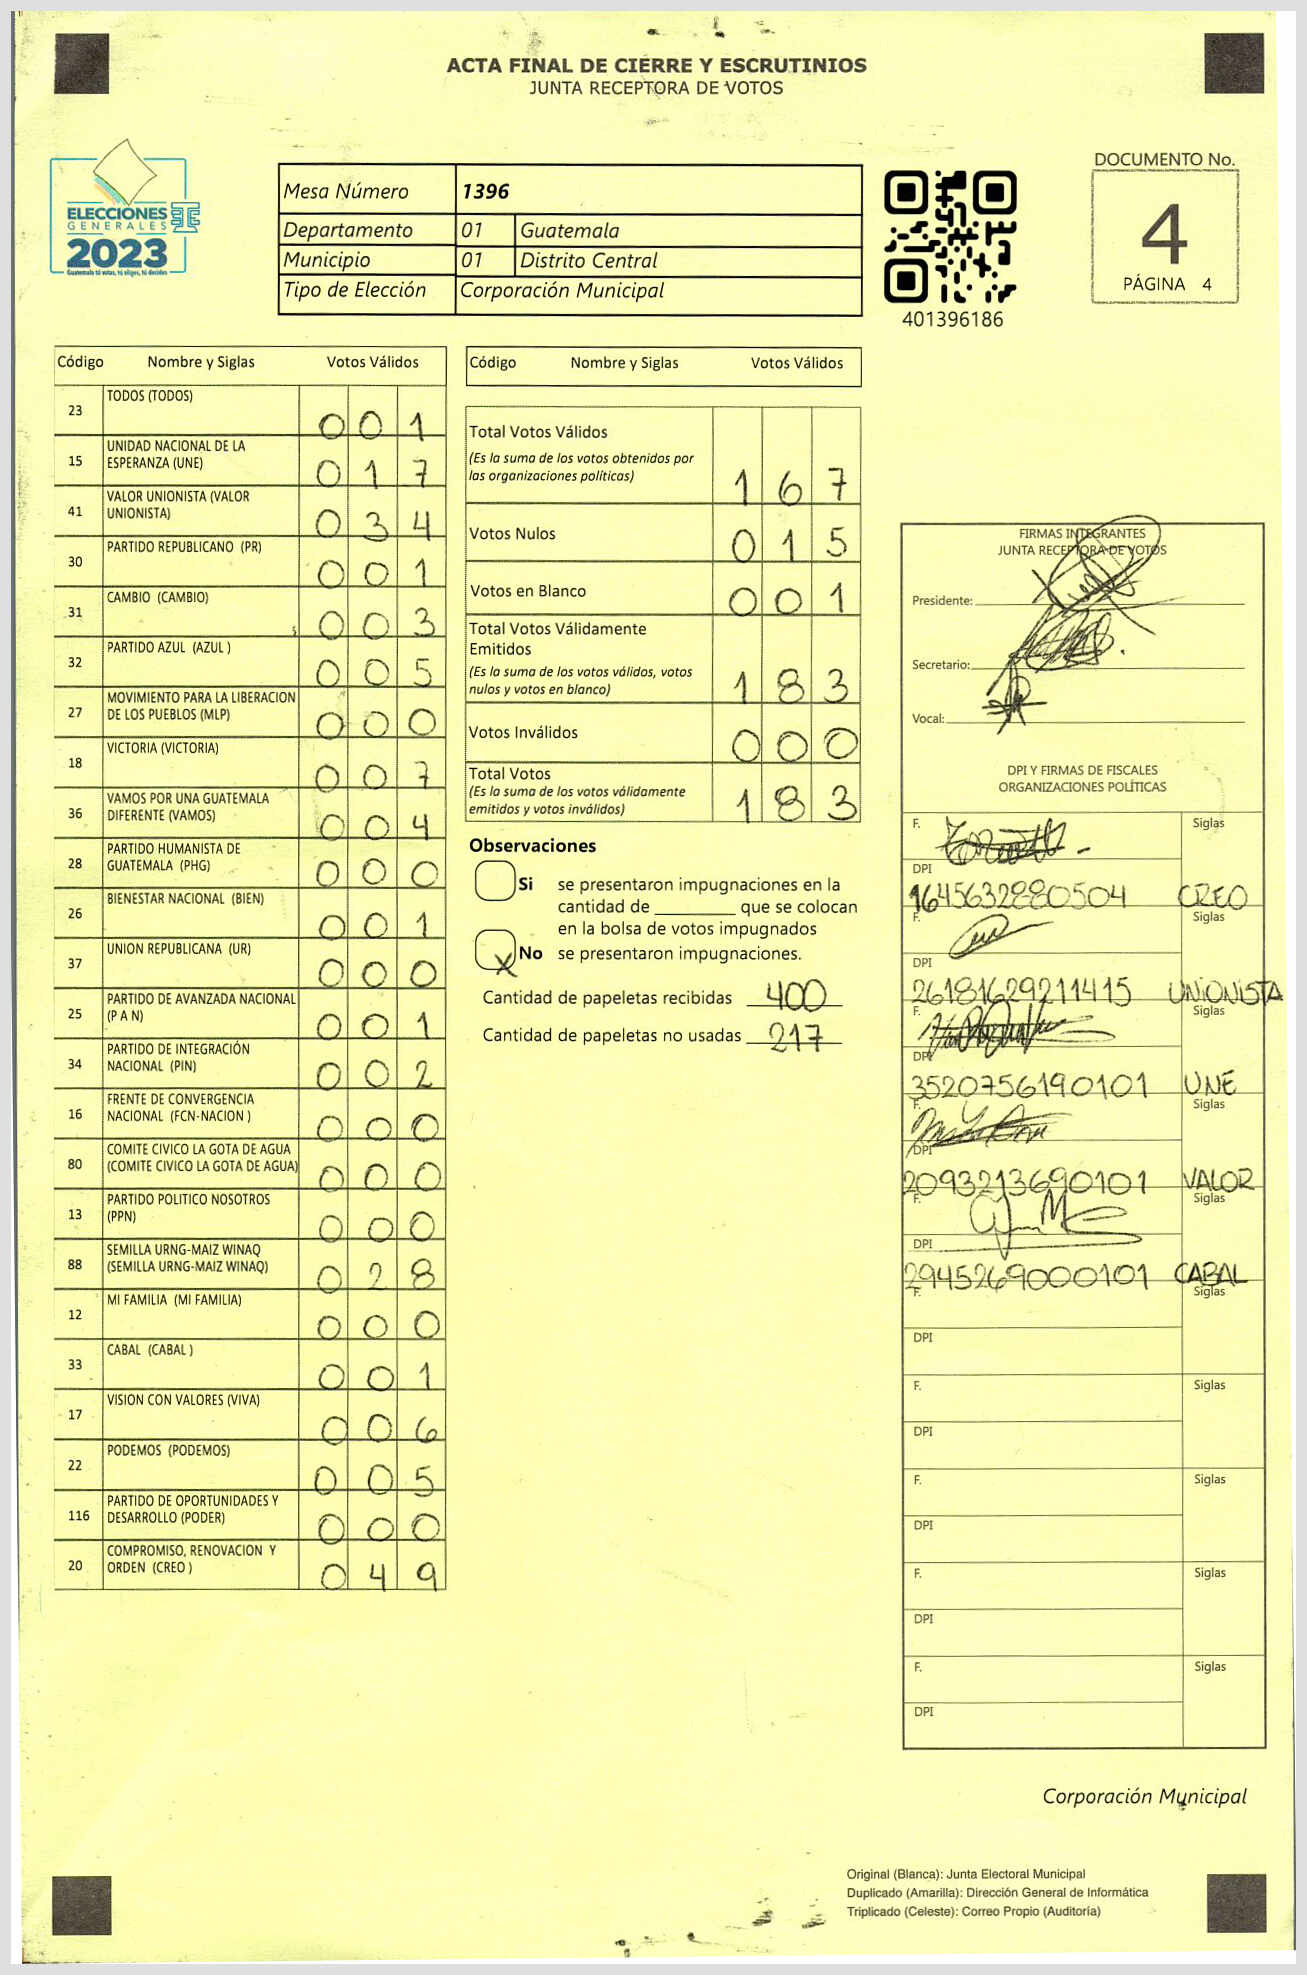 ACTA FINAL DE CIERRE Y ESCRUTINIOS
JUNTA RECEPTORA DE VOTOS
ELECCIONES
GENERALES
2023
Guatemala tú votas, tú eliges, tú decides
Mesa Número 1396
Departamento 01 Guatemala
Municipio 01 Distrito Central
Tipo de Elección Corporación Municipal
401396186
DOCUMENTO No.
4
PÁGINA 4
Código Nombre y Siglas Votos Válidos
23 TODOS (TODOS) 0 0 1
15 UNIDAD NACIONAL DE LA
ESPERANZA (UNE) 0 1 7
41 VALOR UNIONISTA (VALOR
UNIONISTA) 0 3 4
30 PARTIDO REPUBLICANO (PR) 0 0 1
31 CAMBIO (CAMBIO) 0 0 3
32 PARTIDO AZUL (AZUL ) 0 0 5
27 MOVIMIENTO PARA LA LIBERACION
DE LOS PUEBLOS (MLP) 0 0 0
18 VICTORIA (VICTORIA) 0 0 7
36 VAMOS POR UNA GUATEMALA
DIFERENTE (VAMOS) 0 0 4
28 PARTIDO HUMANISTA DE
GUATEMALA (PHG) 0 0 0
26 BIENESTAR NACIONAL (BIEN) 0 0 1
37 UNION REPUBLICANA (UR) 0 0 0
25 PARTIDO DE AVANZADA NACIONAL
(P A N) 0 0 1
34 PARTIDO DE INTEGRACIÓN
NACIONAL (PIN) 0 0 2
16 FRENTE DE CONVERGENCIA
NACIONAL (FCN-NACION ) 0 0 0
80 COMITE CIVICO LA GOTA DE AGUA
(COMITE CIVICO LA GOTA DE AGUA) 0 0 0
13 PARTIDO POLITICO NOSOTROS
(PPN) 0 0 0
88 SEMILLA URNG-MAIZ WINAQ
(SEMILLA URNG-MAIZ WINAQ) 0 2 8
12 MI FAMILIA (MI FAMILIA) 0 0 0
33 CABAL (CABAL ) 0 0 1
17 VISION CON VALORES (VIVA) 0 0 6
22 PODEMOS (PODEMOS) 0 0 5
116 PARTIDO DE OPORTUNIDADES Y
DESARROLLO (PODER) 0 0 0
20 COMPROMISO, RENOVACION Y
ORDEN (CREO ) 0 4 9
Código Nombre y Siglas Votos Válidos
Total Votos Válidos
(Es la suma de los votos obtenidos por
las organizaciones políticas) 1 6 7
Votos Nulos 0 1 5
Votos en Blanco 0 0 1
Total Votos Válidamente
Emitidos
(Es la suma de los votos válidos, votos
nulos y votos en blanco) 1 8 3
Votos Inválidos 0 0 0
Total Votos
(Es la suma de los votos válidamente
emitidos y votos inválidos) 1 8 3
Observaciones
Si se presentaron impugnaciones en la
cantidad de ________ que se colocan
en la bolsa de votos impugnados
X No se presentaron impugnaciones.
Cantidad de papeletas recibidas 400
Cantidad de papeletas no usadas 217
FIRMAS INTEGRANTES
JUNTA RECEPTORA DE VOTOS
Presidente:
Secretario:
Vocal:
DPI Y FIRMAS DE FISCALES
ORGANIZACIONES POLÍTICAS
F. Siglas
DPI
1645632880504 CREO
F. Siglas
DPI
26181629211415 UNIONISTA
F. Siglas
DPI
3520756190101 UNE
F. Siglas
DPI
2093213690101 VALOR
F. Siglas
DPI
2945269000101 CABAL
F. Siglas
DPI
F. Siglas
DPI
F. Siglas
DPI
F. Siglas
DPI
F. Siglas
DPI
Corporación Municipal
Original (Blanca): Junta Electoral Municipal
Duplicado (Amarilla): Dirección General de Informática
Triplicado (Celeste): Correo Propio (Auditoría)